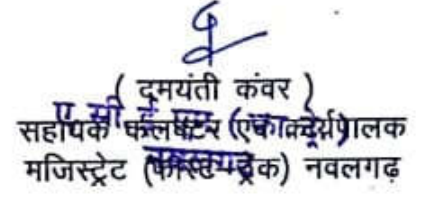 ( दमयंती कंवर )
सहायक कलक्टर (एवं कार्यपालक
मजिस्ट्रेट (फास्ट-ट्रेक) नवलगढ़